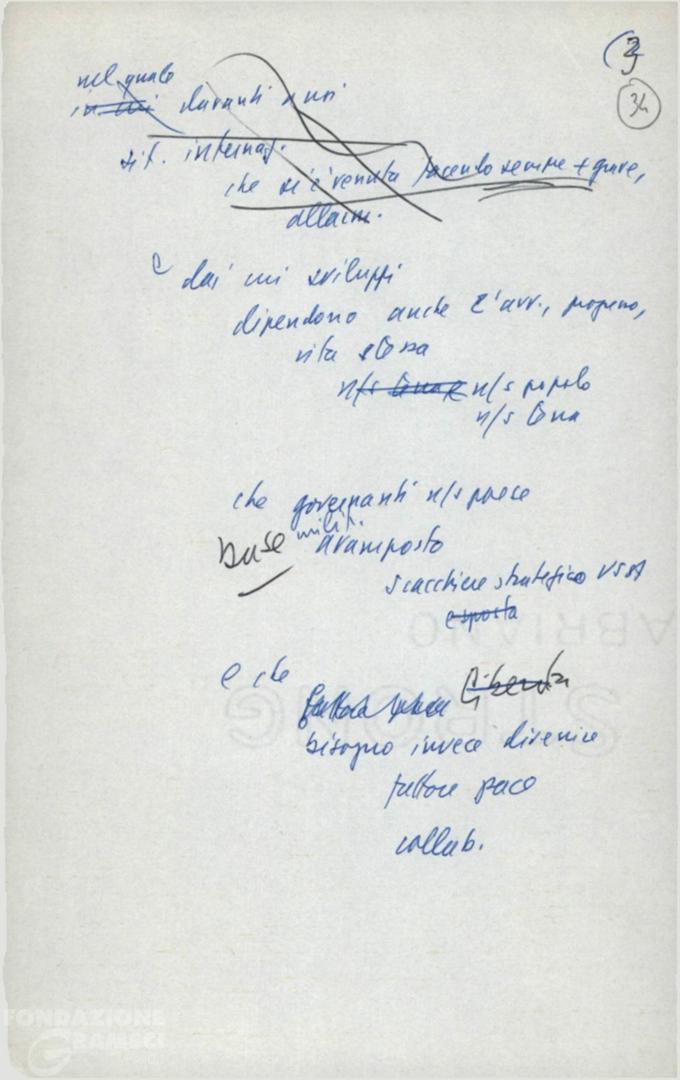 (3
34
nel quale
in cui davanti a noi
sit. internaz.
che si è venuta facendo sempre + grave,
allarm.
e dai cui sviluppi
dipendono anche l'avv., progresso,
vita stessa
n/s terra n/s popolo
n/s terra
che governanti n/s paese
milit.
base avamposto
scacchiere strategico USA
esposta
e che
bisogno invece divenire
fattore pace
collab.
FABRIANO
STRONG
FONDAZIONE
GRAMSCI